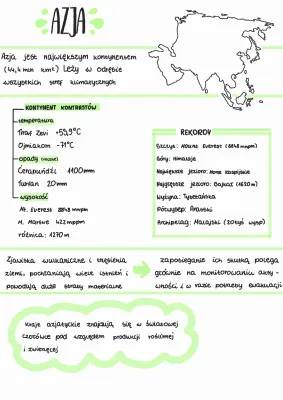 AZJA
Azja jest największym kontynentem
(44,4 mln km²) Leży w obrębie
wszystkich stref klimatycznych
KONTYNENT KONTRASTÓW
temperatura
Tirat Zevi +53,9°C
Ojmiakon -71°C
opady (roczne)
Czerapuńdżi 11 000 mm
Turfan 20 mm
wysokość
Mt. Everest 8848 m npm
M. Martwe 422 m ppm
różnica: 9270 m
REKORDY
Szczyt: Mount Everest (8848 m npm)
Góry: Himalaje
Największe jezioro: Morze Kaspijskie
Najgłębsze jezioro: Bajkał (1620 m)
Wyżyna: Tybetańska
Półwysep: Arabski
Archipelag: Malajski (20 tyś wysp)
Zjawiska wulkaniczne i trzęsienia
ziemi, pochłaniają wiele istnień i
powodują duże straty materialne
zapobieganie ich skutką polega
głównie na monitorowaniu akty-
wności i w razie potrzeby ewakuacji
Kraje azjatyckie znajdują się w światowej
czołówce pod względem produkcji roślinnej
i zwierzęcej